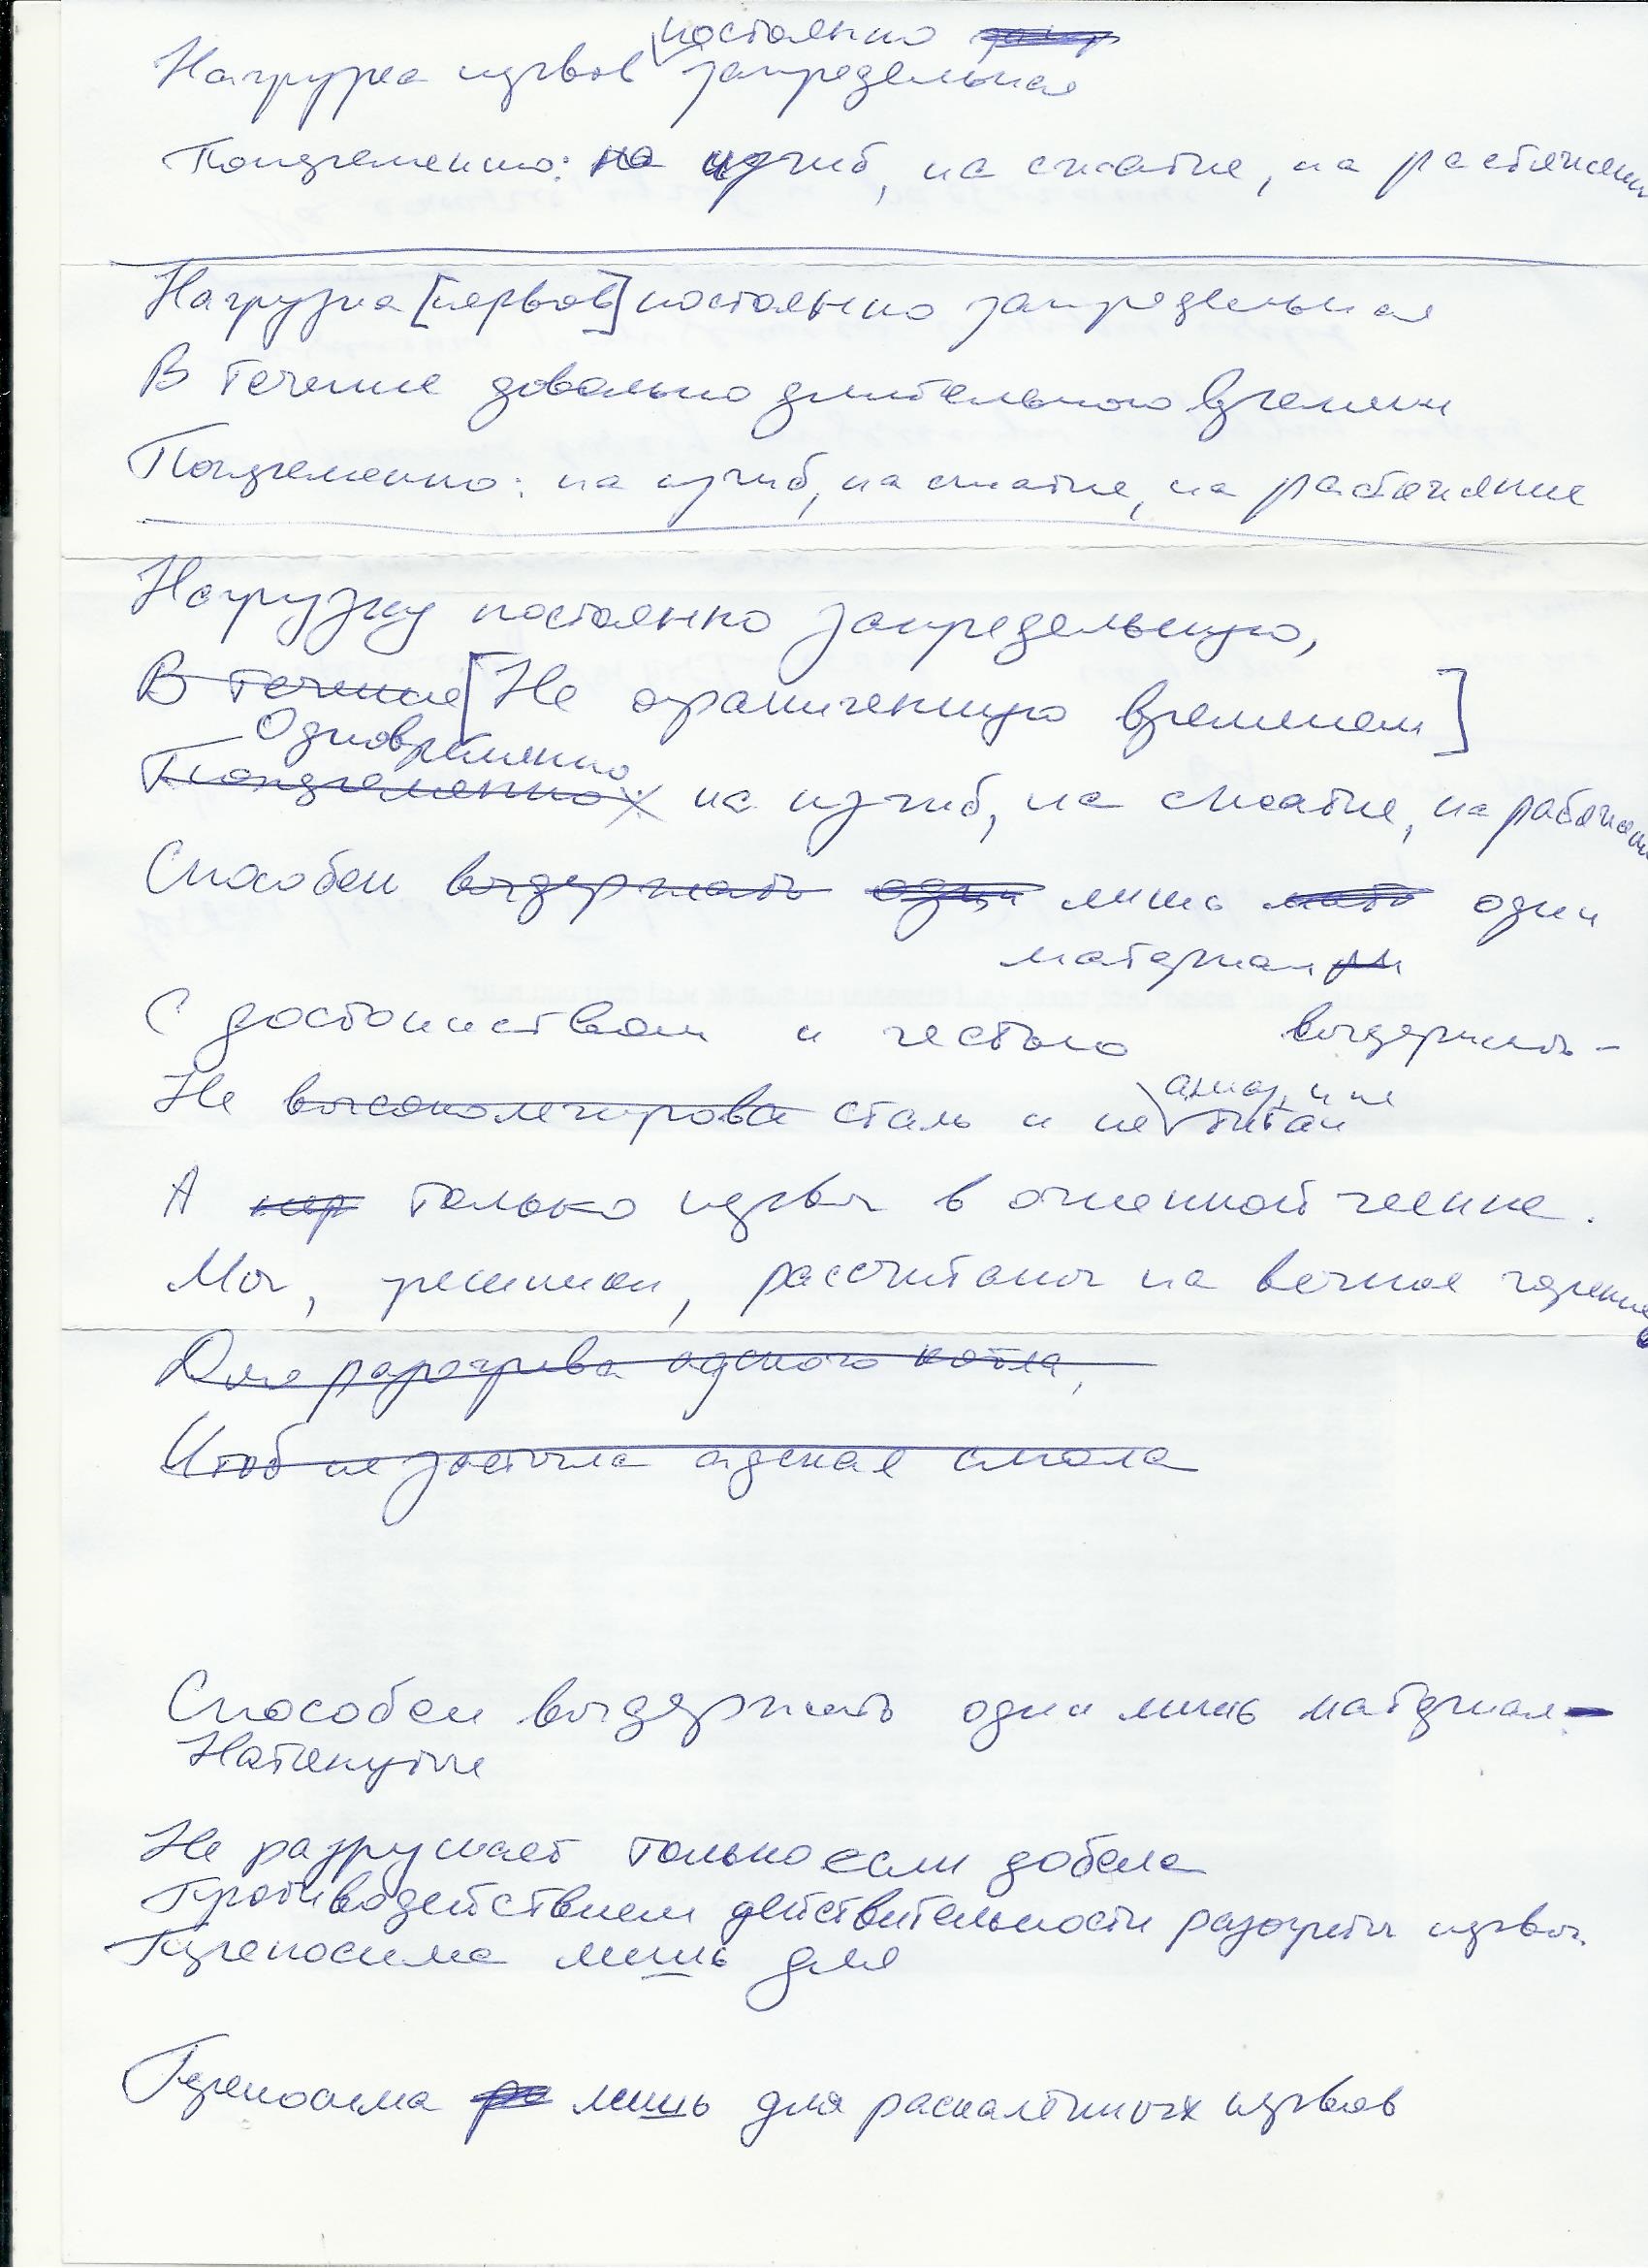 постоянно
Нагрузка нервов запредельная
Попеременно: на изгиб, на сжатие, на растяжени
Нагрузка [нервов] постоянно запредельная
В течение довольно длительного времени
Попеременно: на изгиб, на сжатие, на растяжение
Нагрузку постоянно запредельную,
В течение [Не ограниченную временем]
Одновременно
Попеременно: на изгиб, на сжатие, на растяжени
Способен выдержать один лишь один
материал
С достоинством и честью выдержать –
Не высоколегирова сталь и не титан
алмаз, и не
А нер только нервы в огненной геенне.
Мы, грешники, рассчитаны на вечное горение
Для разогрева адского котла,
Чтоб не застыла адская смола
Способен выдержать один лишь материал–
Натянутые
Не разрушает только если добела
Противодействием действительности разогреты нервы.
Переносима лишь для
Переносима лишь для раскалённых нервов